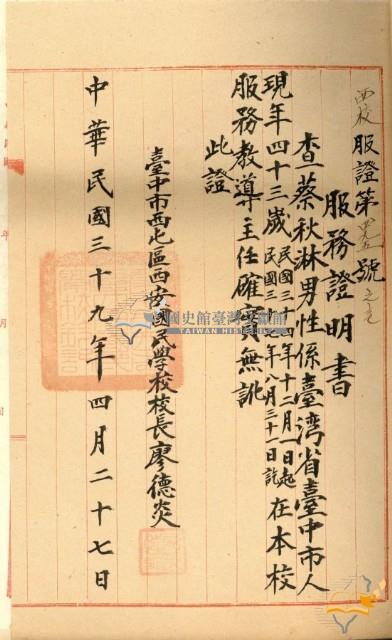 西校服證第號
服務證明書
查蔡秋淋男性係臺灣省臺中市人
現年四十三歲民國三十年十二月一日起
民國三年八月三十一日訖在本校
服務教導主任確實無訛
此證
臺中市西屯區西安國民學校校長廖德炎
中華民國三十九年四月二十七日
國史館臺灣文獻館
TAIWAN HIS